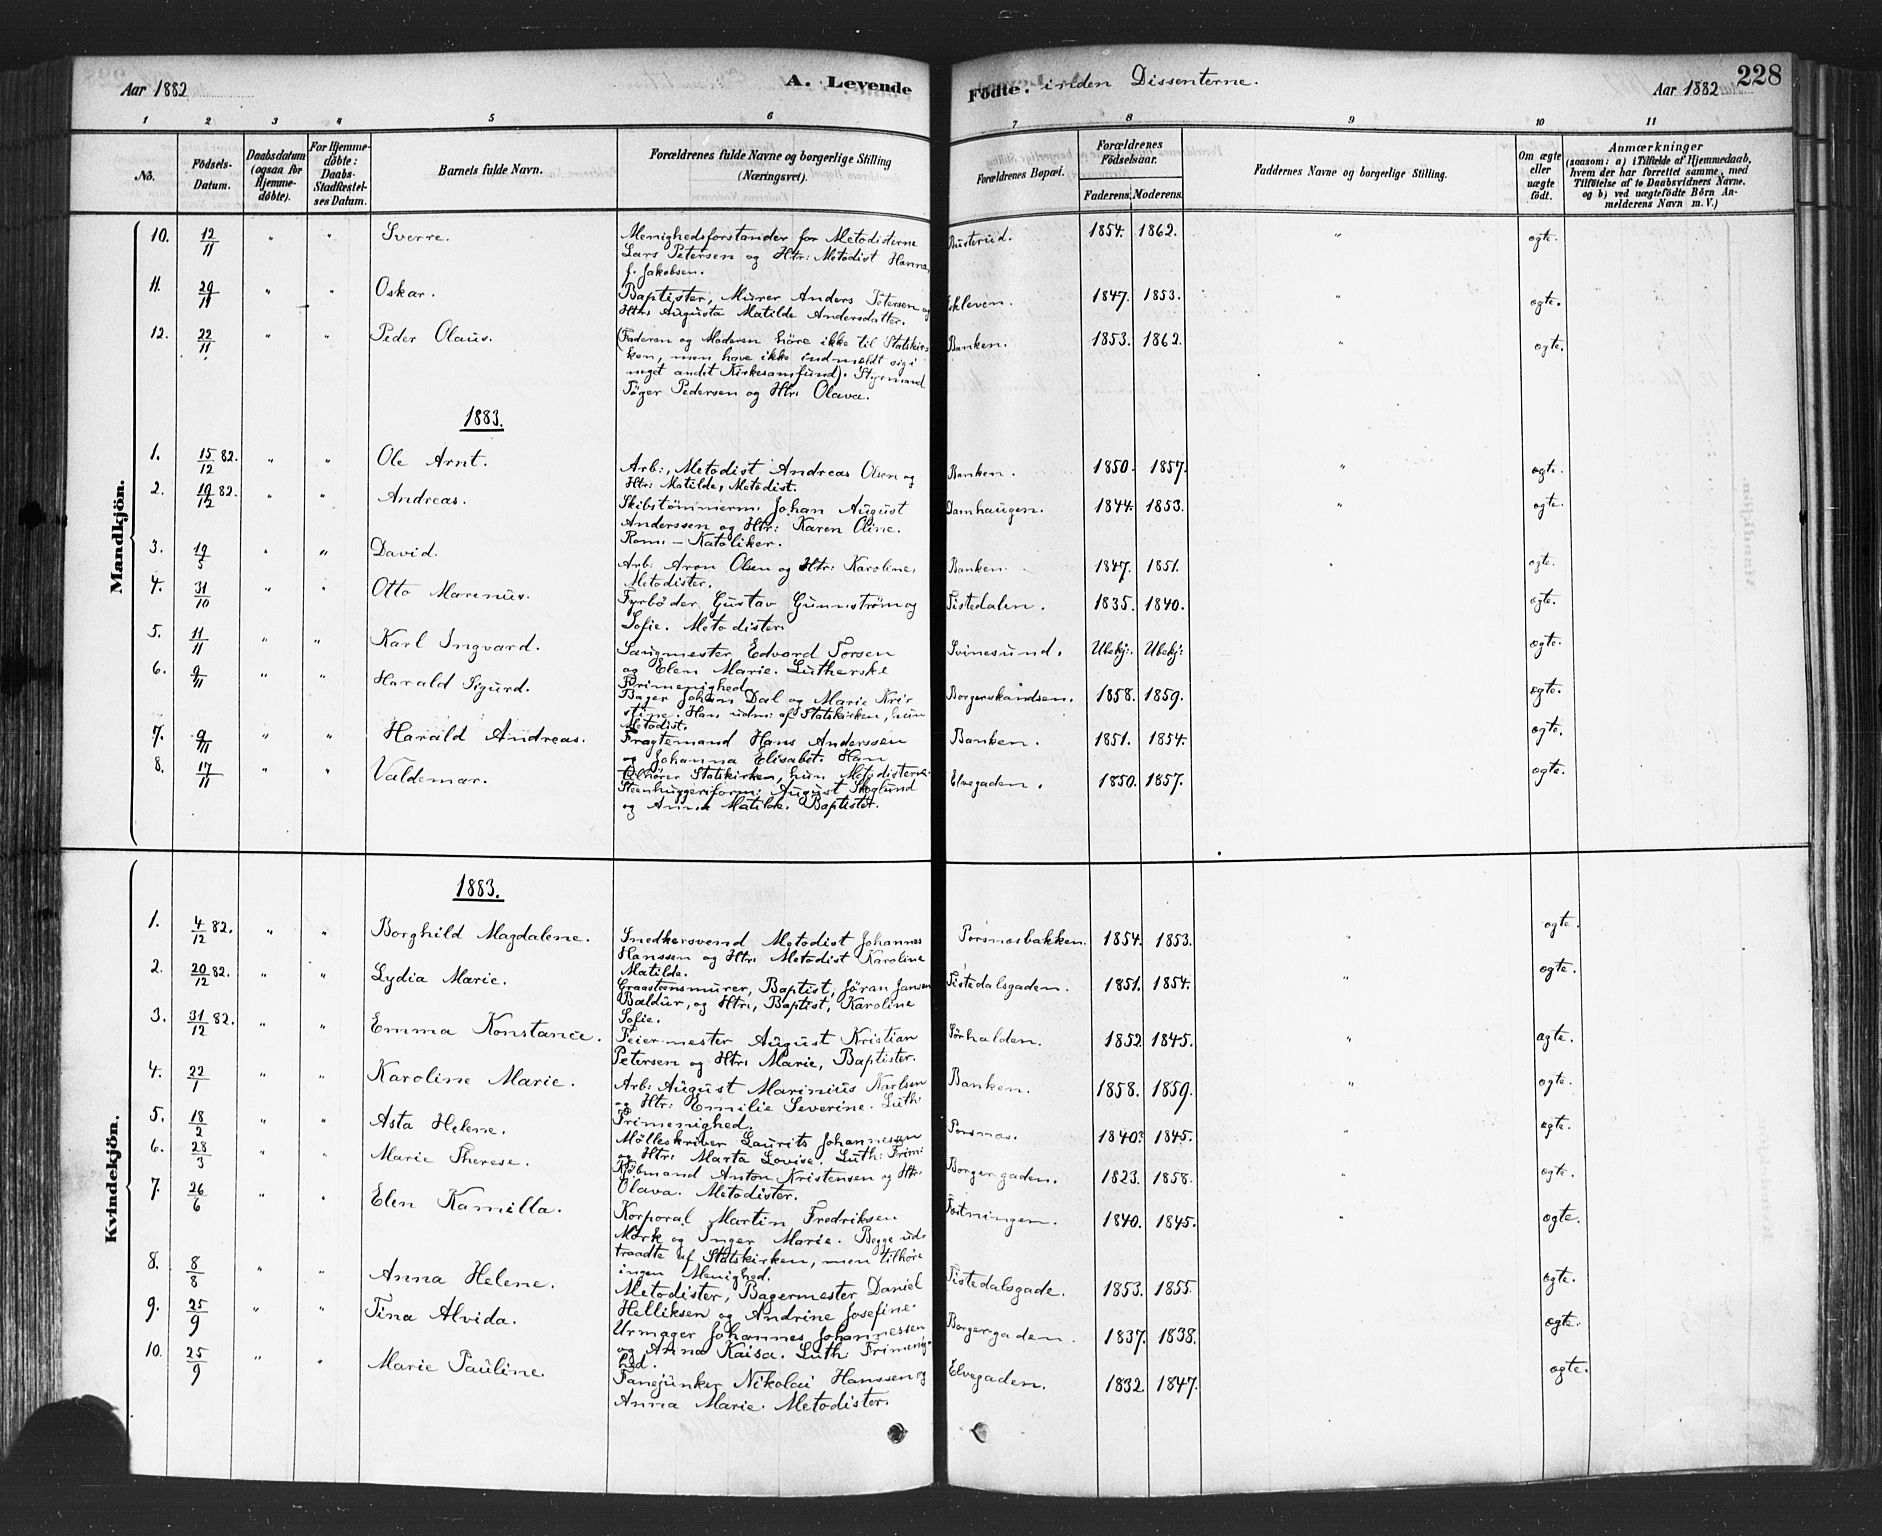 Aar 1882 A. Levende Fødte. inden Dissenterne. Aar 1882 228
1 2 3 4 5 6 7 8 9 10 11
No. Fødsels-Datum. Daabsdatum (ogsaa for Hjemmedøbte). For Hjemmedøbte: Daabs-Stadfæstelses Datum. Barnets fulde Navn. Forældrenes fulde Navne og borgerlige Stilling (Næringsvei). Forældrenes Bopæl. Forældrenes Fødselsaar. Faderens. Moderens. Faddernes Navne og borgerlige Stilling. Om ægte eller uægte født. Anmærkninger (saasom: a) i Tilfælde af Hjemmedaab, hvem der har forrettet samme, med Tilføielse af to Daabsvidners Navne, og b) ved uægtefødte Børn Anmelderens Navn m. V.)
Mandkjøn.
10. 12/11 " " Sverre. Menighedsforstander for Metodisterne Busterud. 1854. 1862. " ægte.
Lars Petersen og Htr: Metodist Hanna,
f. Jakobsen.
11. 29/11 " " Oskar. Baptister, Murer Anders Petersen og 1847. 1853. " ægte.
Htr: Augusta Matilde Andersdatter.
12. 22/11 " " Peder Olaus. (Faderen og Moderen høre ikke til Statskir- Banken. 1853. 1862. " ægte.
ken, men have ikke indmeldt sig i
noget andet Kirkesamfund). Styrmand
Tøger Pedersen og Htr: Olava.
1883.
1. 15/12 82. " " Ole Arnt. Arb:, Metodist Andreas Olsen og Banken. 1850. 1857. " ægte.
Htr: Matilde, Metodist.
2. 19/12 82. " " Andreas. Skibstømmerm: Johan August Damhaugen. 1844. 1853. " ægte.
Anderssen og Htr: Karen Oline.
Rom: - Katoliker.
3. 19/5 " " David. Arb: Aron Olsen og Htr: Karoline, Banken. 1847. 1851. " ægte.
Metodister.
4. 31/10 " " Otto Marenus. Fyrbøder Gustav Gunnstrøm og Tistedalen. 1835. 1840. ægte.
Sofie. Metodister.
5. 11/11 " " Karl Ingvard. Saugmester Edvard Torsen Svinesund. Ubekj: Ubekj: ægte.
og Elen Marie. Lutherske
Frimenighed.
6. 9/11 " " Harald Sigurd. Bager Johan Dal og Marie Kri- Borgerskandsen. 1858. 1859. ægte.
stine. Han udm: af Statskirken, hun
Metodist.
7. 9/11 " " Harald Andreas. Fragtemand Hans Anderssen Banken. 1851. 1854. ægte.
og Johanna Elisabet. Han
tilhører Statskirken, hun Metodisterne.
8. 17/11 " " Valdemar. Steenhuggerform: August Skoglund Elvegaden. 1850. 1857. ægte.
og Anna Matilde. Baptister.
Kvindekjøn.
1883.
1. 4/12 82. " " Borghild Magdalene. Snedkersvend Metodist Johannes Porsnæsbakken. 1854. 1853. " ægte.
Hanssen og Htr: Metodist Karoline
Matilde.
2. 20/12 82. " " Lydia Marie. Graastensmurer, Baptist, Jøran Jansen Tistedalsgaden. 1851. 1854. " ægte.
Baldur, og Htr:, Baptist, Karoline
Sofie.
3. 31/12 82. " " Emma Konstance. Feiermester August Kristian Sørhalden. 1852. 1845. " ægte.
Petersen og Htr: Marie, Baptister.
4. 22/1 " " Karoline Marie. Arb: August Marinius Karlsen Banken. 1858. 1859. " ægte.
og Htr: Emilie Severine. Luth:
Frimenighed.
5. 18/2 " " Asta Helene. Mølleskriver Laurits Johannessen Porsnæs. 1840? 1845. " ægte.
og Htr: Marta Lovise. Luth: Frim:
6. 28/3 " " Marie Therese. Kjøbmand Anton Kristensen og Htr: Borgergaden. 1823. 1858. " ægte.
Olava. Metodister.
7. 26/6 " " Elen Kamilla. Korporal Martin Fredriksen Fæstningen. 1840. 1845. " ægte.
Mørk og Inger Marie. Begge ud-
traadte af Statskirken, men tilhøre
ingen Menighed.
8. 8/8 " " Anna Helene. Metodister, Bagermester Daniel Tistedalsgade. 1853. 1855. ægte.
Helliksen og Andrine Josefine.
9. 25/9 " " Tina Alvida. Urmager Johannes Johannessen Borgergaden. 1837. 1838. ægte.
og Anna Kaisa. Luth: Frimenig-
hed.
10. 25/9 " " Marie Pauline. Fanejunker Nikolai Hanssen og Elvegaden. 1832. 1847. ægte.
Anna Marie. Metodister.